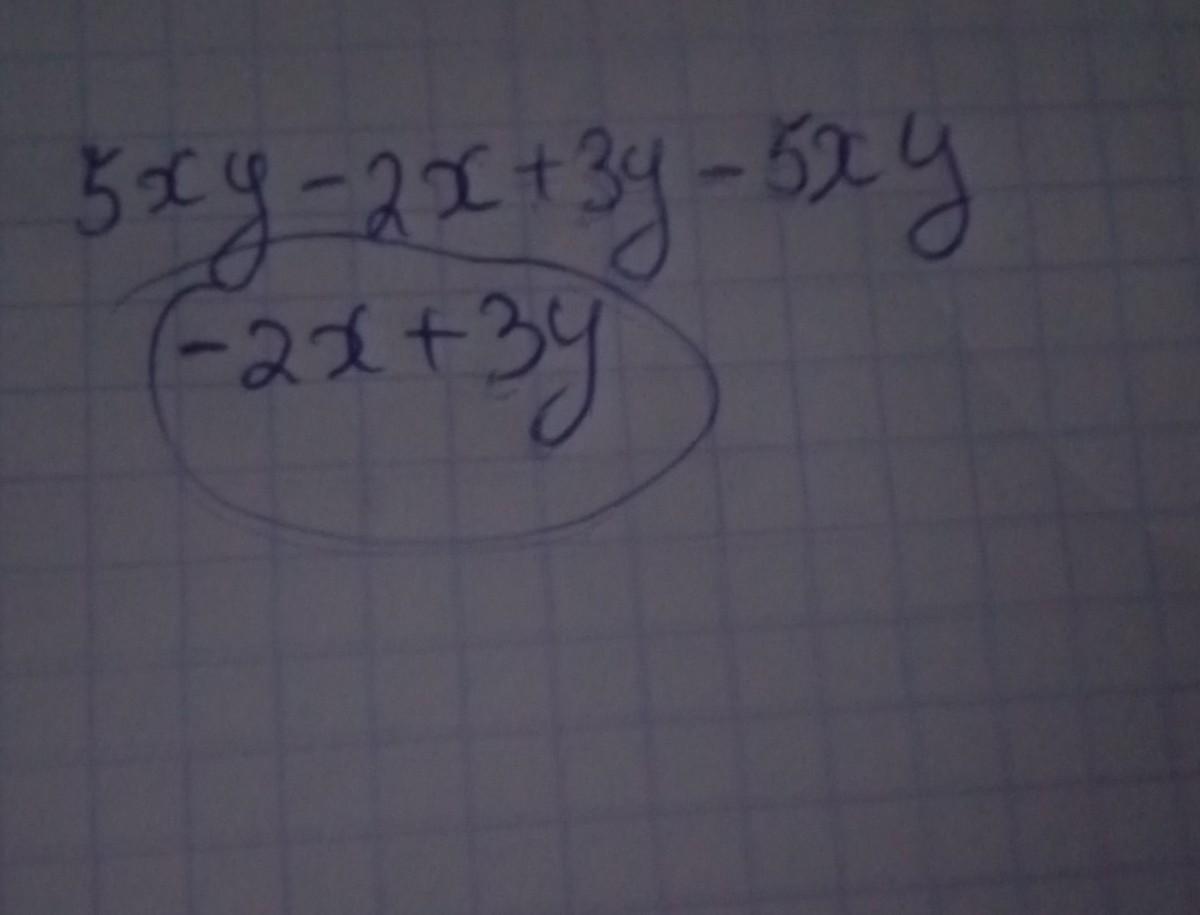 5xy-2x+3y-5xy
-2x+3y